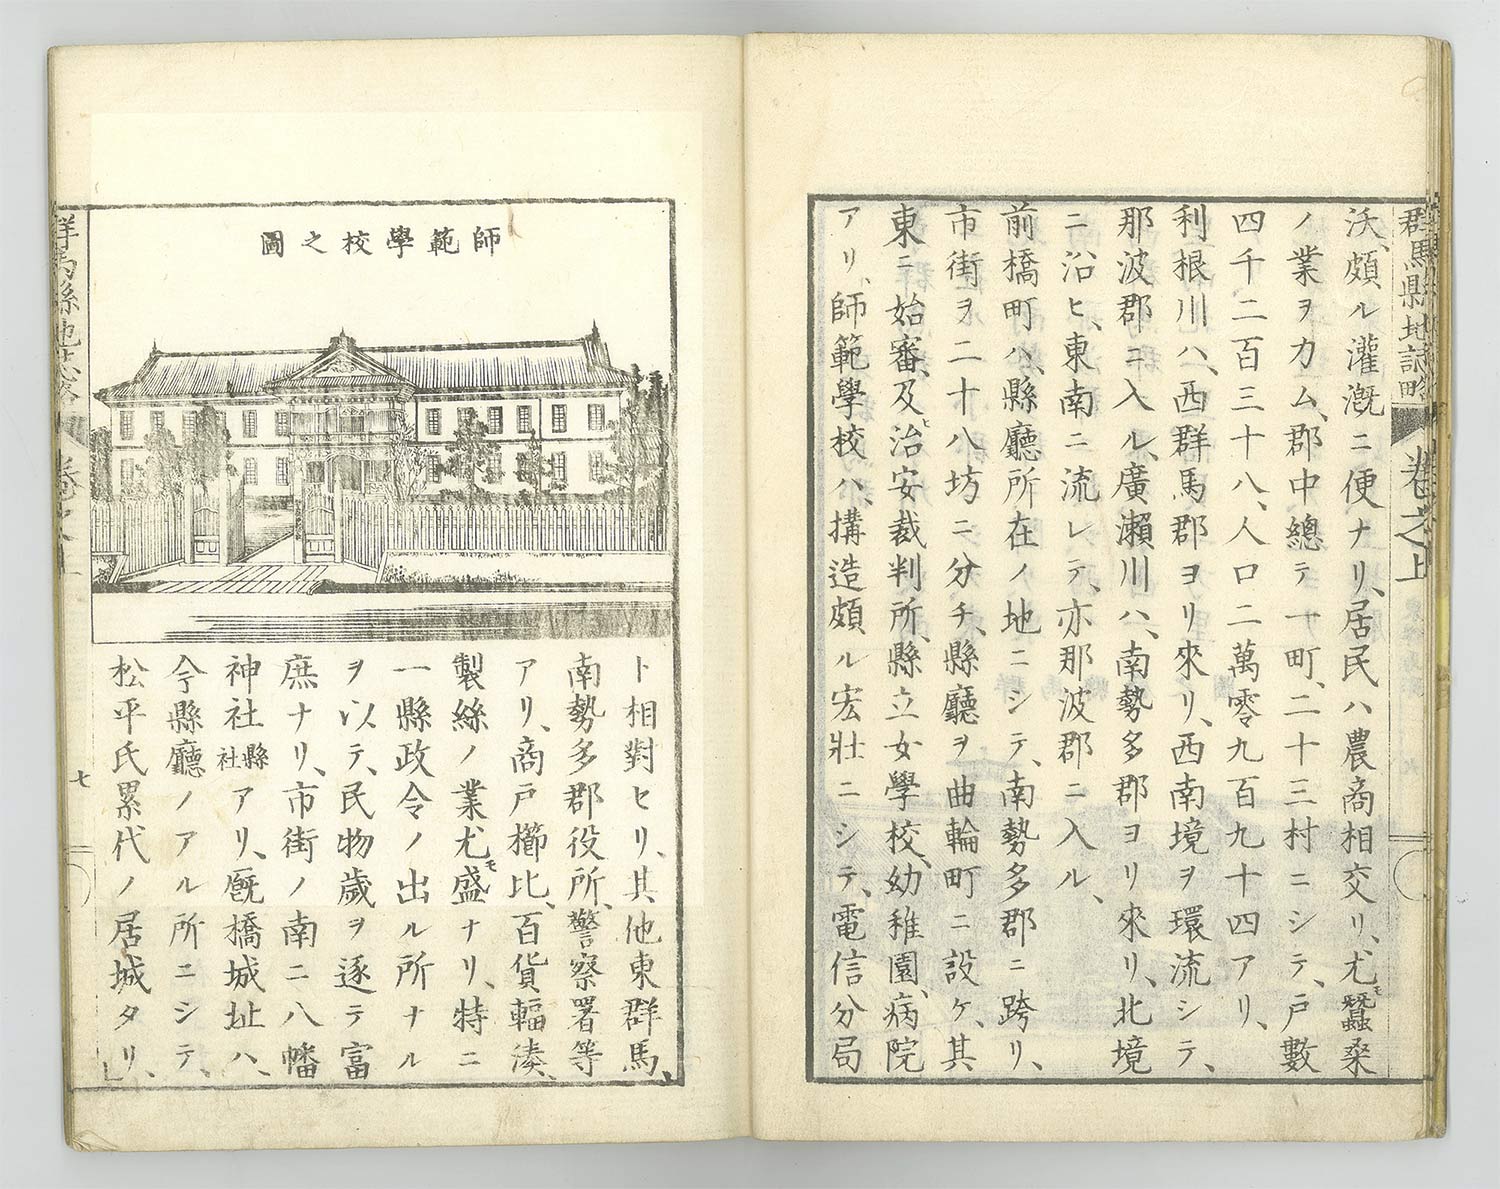 群馬縣地誌略 卷之上
沃、頗ル灌漑ニ便ナリ、居民ハ農商相交リ、尤モ蠶桑
ノ業ヲカム、郡中、總テ一町、二十三村ニシテ、戸數
四千二百三十八、人口二萬零九百九十四アリ、
利根川ハ、西群馬郡ヨリ來リ、西南境ヲ環流シテ、
那波郡ニ入ル、廣瀨川ハ、南勢多郡ヨリ來リ、北境
ニ沿ヒ、東南ニ流レテ、亦那波郡ニ入ル、
前橋町ハ、縣廳所在ノ地ニシテ、南勢多郡ニ跨リ、
市街ヲ二十八坊ニ分チ、縣廳ヲ曲輪町ニ設ケ、其
東ニ始審、及ヒ治安裁判所、縣立女學校、幼稚園、病院
アリ、師範學校ハ、搆造頗ル宏壯ニシテ、電信分局
師範學校之圖
ト相對セリ、其他東群馬、
南勢多郡役所、警察署等
アリ、商戸櫛比、百貨輻湊、
製絲ノ業尤モ盛ナリ、特ニ
一縣政令ノ出ル所ナル
ヲ以テ、民物歲ヲ逐テ富
庶ナリ、市街ノ南ニ八幡
神社縣社アリ、厩橋城址ハ、
今縣廳ノアル所ニシテ、
松平氏累代ノ居城タリ、
群馬縣地誌略 卷之上
七